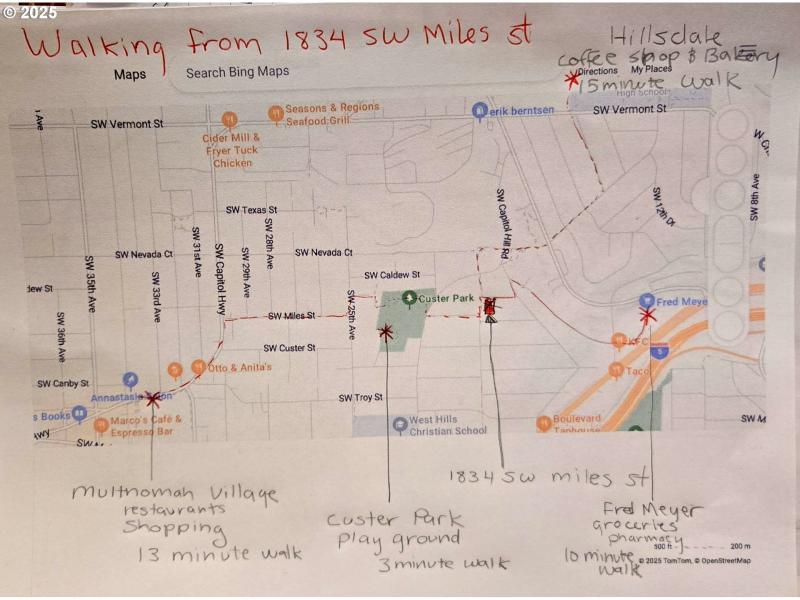 © 2025
Walking from 1834 SW Miles st
Hillsdale
coffee shop & Bakery
15 minute walk
Maps
Search Bing Maps
Directions
My Places
High School
SW Vermont St
Cider Mill &
Fryer Tuck
Chicken
Seasons & Regions
Seafood Grill
erik berntsen
SW Vermont St
SW Texas St
SW Nevada Ct
SW Nevada Ct
SW 35th Ave
SW 36th Ave
SW 33rd Ave
SW 31st Ave
SW Capitol Hwy
SW 29th Ave
SW 28th Ave
SW 25th Ave
SW Capitol Hill Rd
SW 12th Dr
SW 8th Ave
SW Caldew St
dew St
Custer Park
SW Miles St
SW Custer St
Fred Meye
KFC
5
Taco
SW Canby St
Otto & Anita's
SW Troy St
s Books
Marco's Café &
Espresso Bar
West Hills
Christian School
Boulevard
Taphouse
SW M
1834 SW miles st
Multnomah Village
restaurants
Shopping
13 minute walk
Custer Park
play ground
3 minute walk
Fred Meyer
groceries
pharmacy
10 minute
walk
500 ft
200 m
© 2025 TomTom, © OpenStreetMap